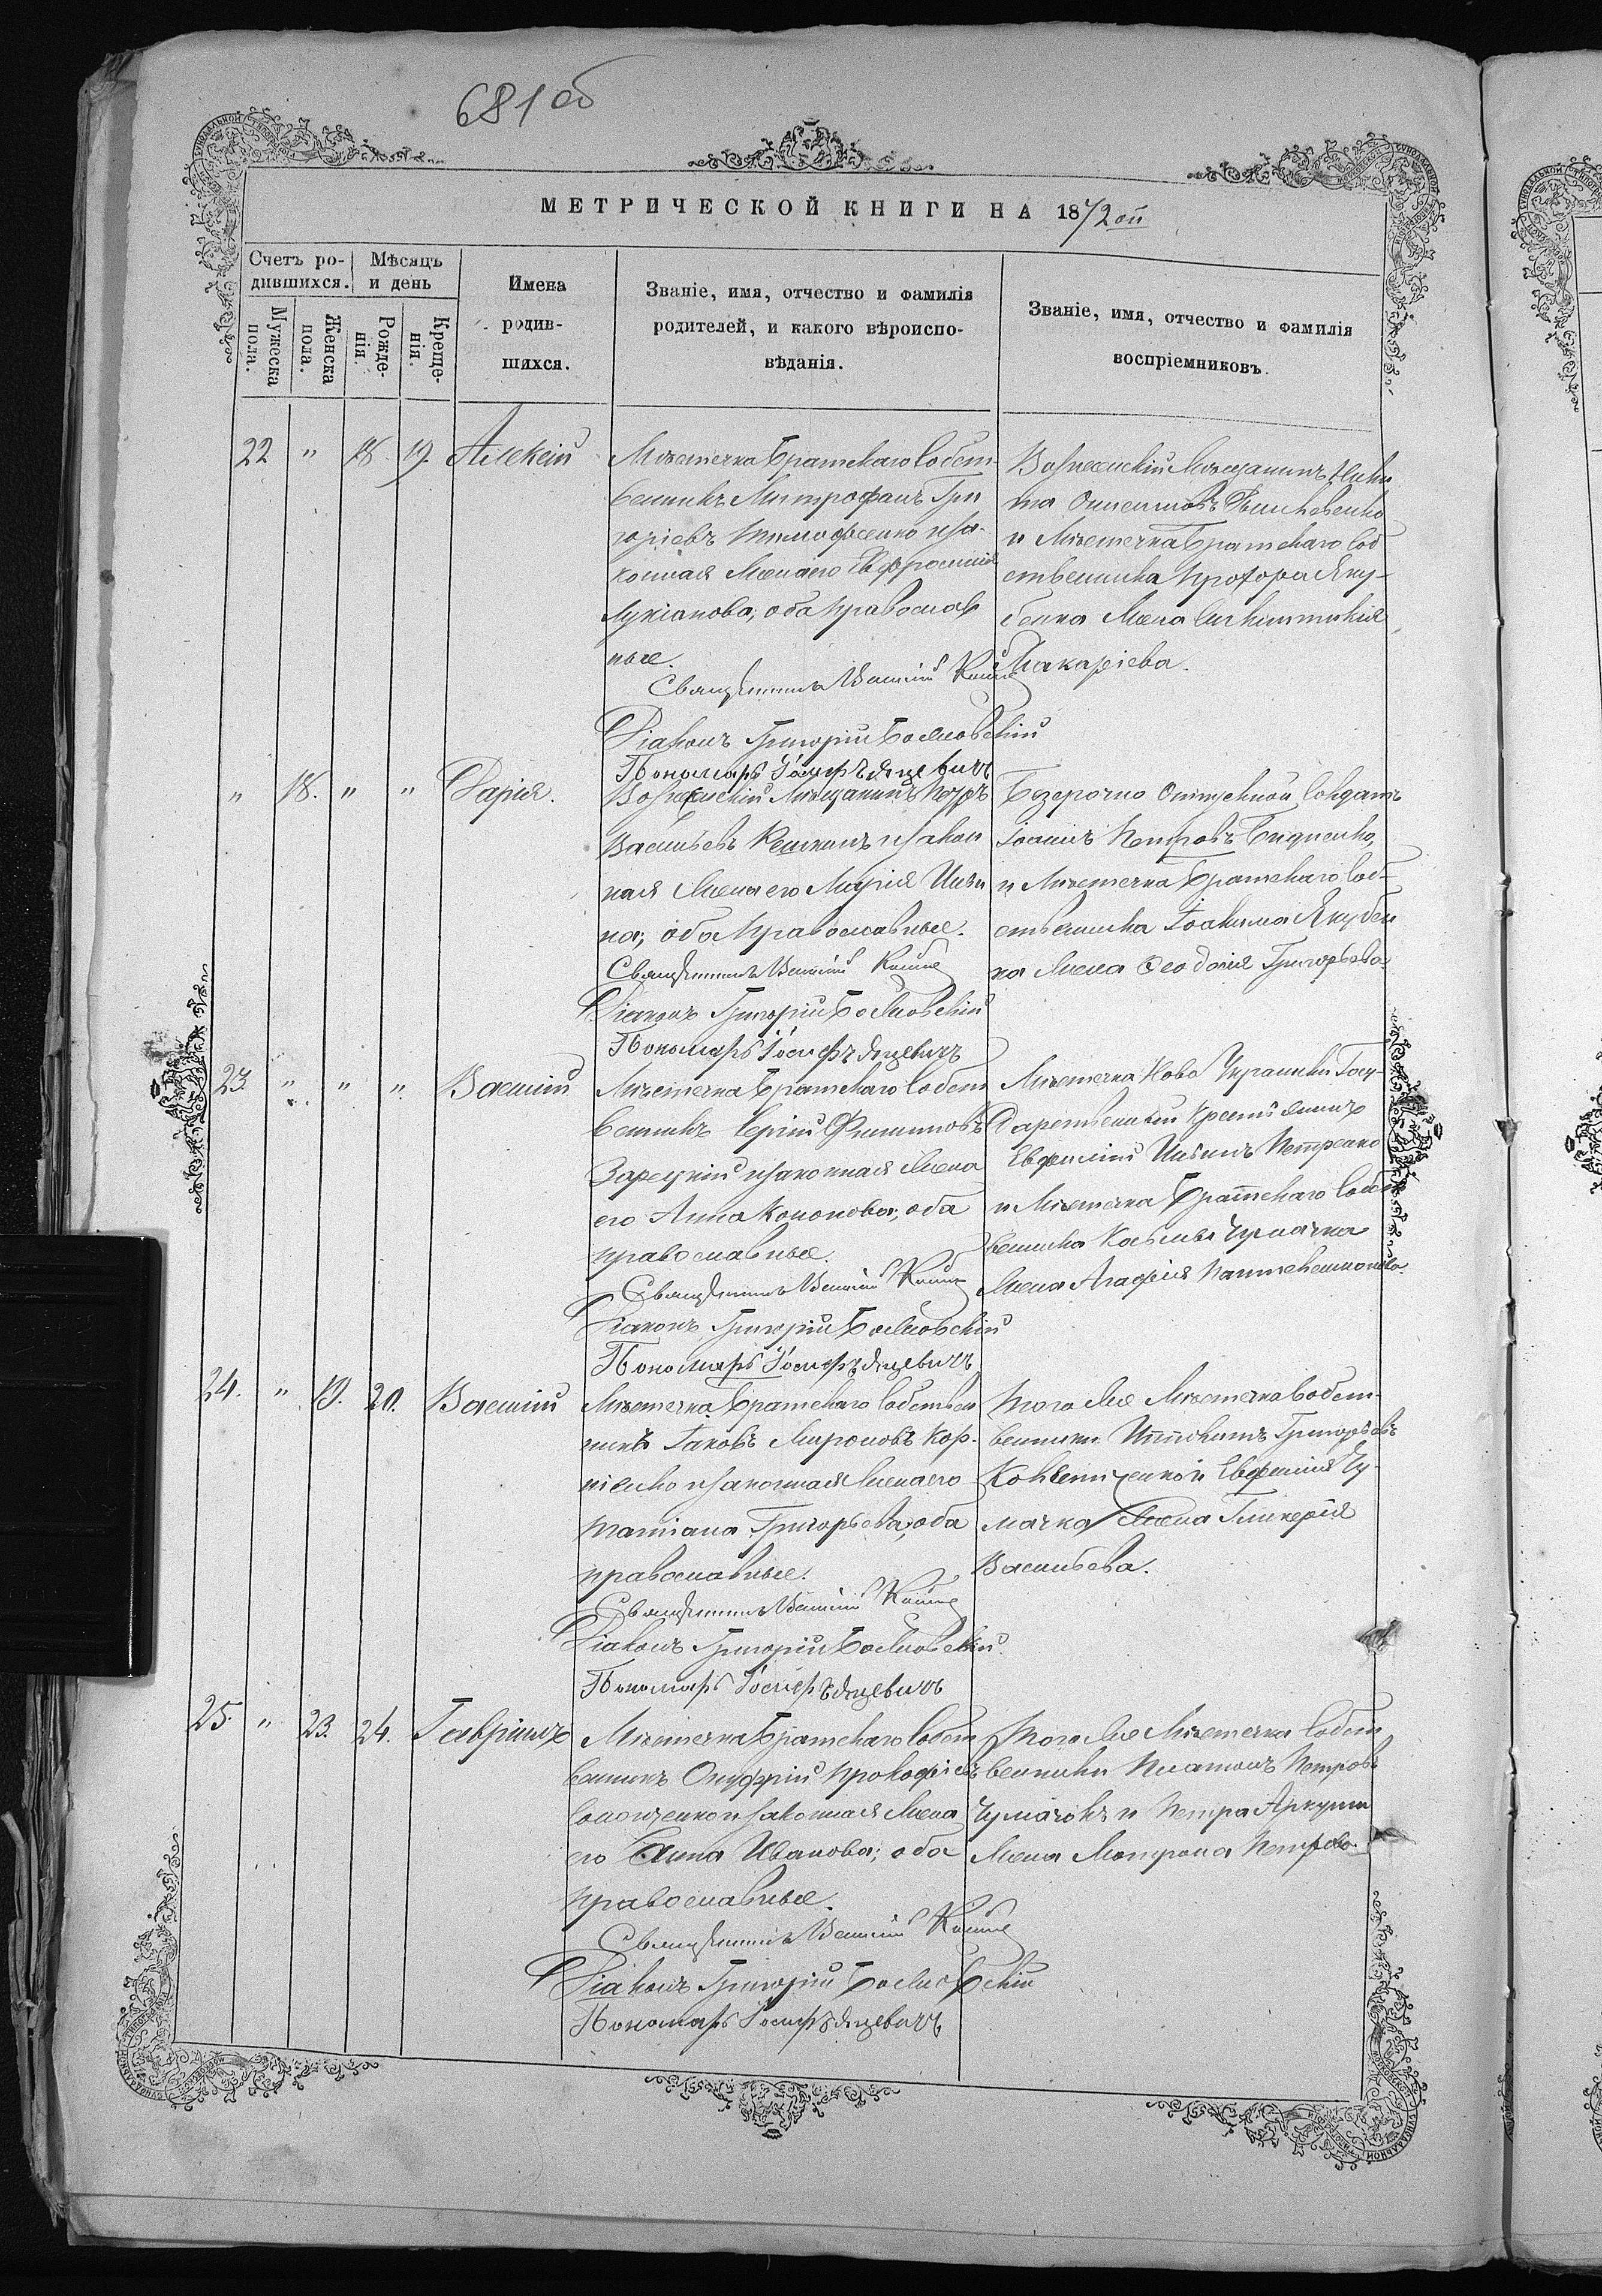 681 об
МЕТРИЧЕСКОЙ КНИГИ НА 1872 ой
Счетъ ро-
дившихся.
Мужеска
пола.
Женска
пола.
Мѣсяцъ
и день
Рожде-
нія.
Креще-
нія.
Имена
родив-
шихся.
Званіе, имя, отчество и фамилія
родителей, и какого вѣроиспо-
вѣданія.
Званіе, имя, отчество и фамилія
воспріемниковъ.
22 " 18. 19. Алексій
Мѣстечка Братскаго собст-
венникъ Митрофанъ Гри
горіевъ Тимофеенко и за-
конная жена его Евфросинія
Лукіанова; оба православ
ные.
Священникъ Василій
Діаконъ Григорій Божновскій
Пономарь Іосифъ Яцевичъ
Вознесенскій Мѣщанинъ Ники
та Онисимовъ
и Мѣстечка Братскаго соб
ственника Прохора Яку-
бенка жена
Макаріева.
" 18. " " Дарія.
Вознесенскій Мѣщанинъ Петръ
Васильевъ и закон
ная жена его Марія Ильи
на; оба православные.
Священникъ Василій
Діаконъ Григорій Божновскій
Пономарь Іосифъ Яцевичъ
Безсрочно Отпускной Солдатъ
Іоаннъ Петровъ Бидненко,
и Мѣстечка Братскаго соб-
ственника Іоакима Якубен
ка жена Феодосія Григорьева.
23. " " " Василій
Мѣстечка Братскаго собст
венникъ Сергій Филиповъ
Зарецкій и законная жена
его Анна Кононова; оба
православные.
Священникъ Василій
Діаконъ Григорій Божновскій
Пономарь Іосифъ Яцевичъ
Мѣстечка Ново Украинки Госу-
дарственный крестьянинъ
Евфимій Ильинъ Петренко
и Мѣстечка Братскаго собст
венника Косьмы Чумачка
жена Агафія Пантелеимонова.
24. " 19. 20. Василій
Мѣстечка Братскаго собствен
никъ Іаковъ Мироновъ Кор-
ніенко и законная жена его
Татіана Григорьева; оба
православные.
Священникъ Василій
Діаконъ Григорій Божновскій.
Пономарь Іосифъ Яцевичъ
Того же Мѣстечка собст-
венники Григорьевъ
и Евфимія Чу-
мачка жена Гликерія
Васильева.
25. " 23. 24. Гавріилъ
Мѣстечка Братскаго собст
венникъ Онуфрій Прокофіевъ
и законная жена
его Анна Иванова; оба
православные.
Священникъ Василій
Діаконъ Григорій Божновскій
Пономарь Іосифъ Яцевичъ
Того же Мѣстечка собст
венники Платонъ Петровъ
Чумачокъ и Петра
жена Матрона Петрова.